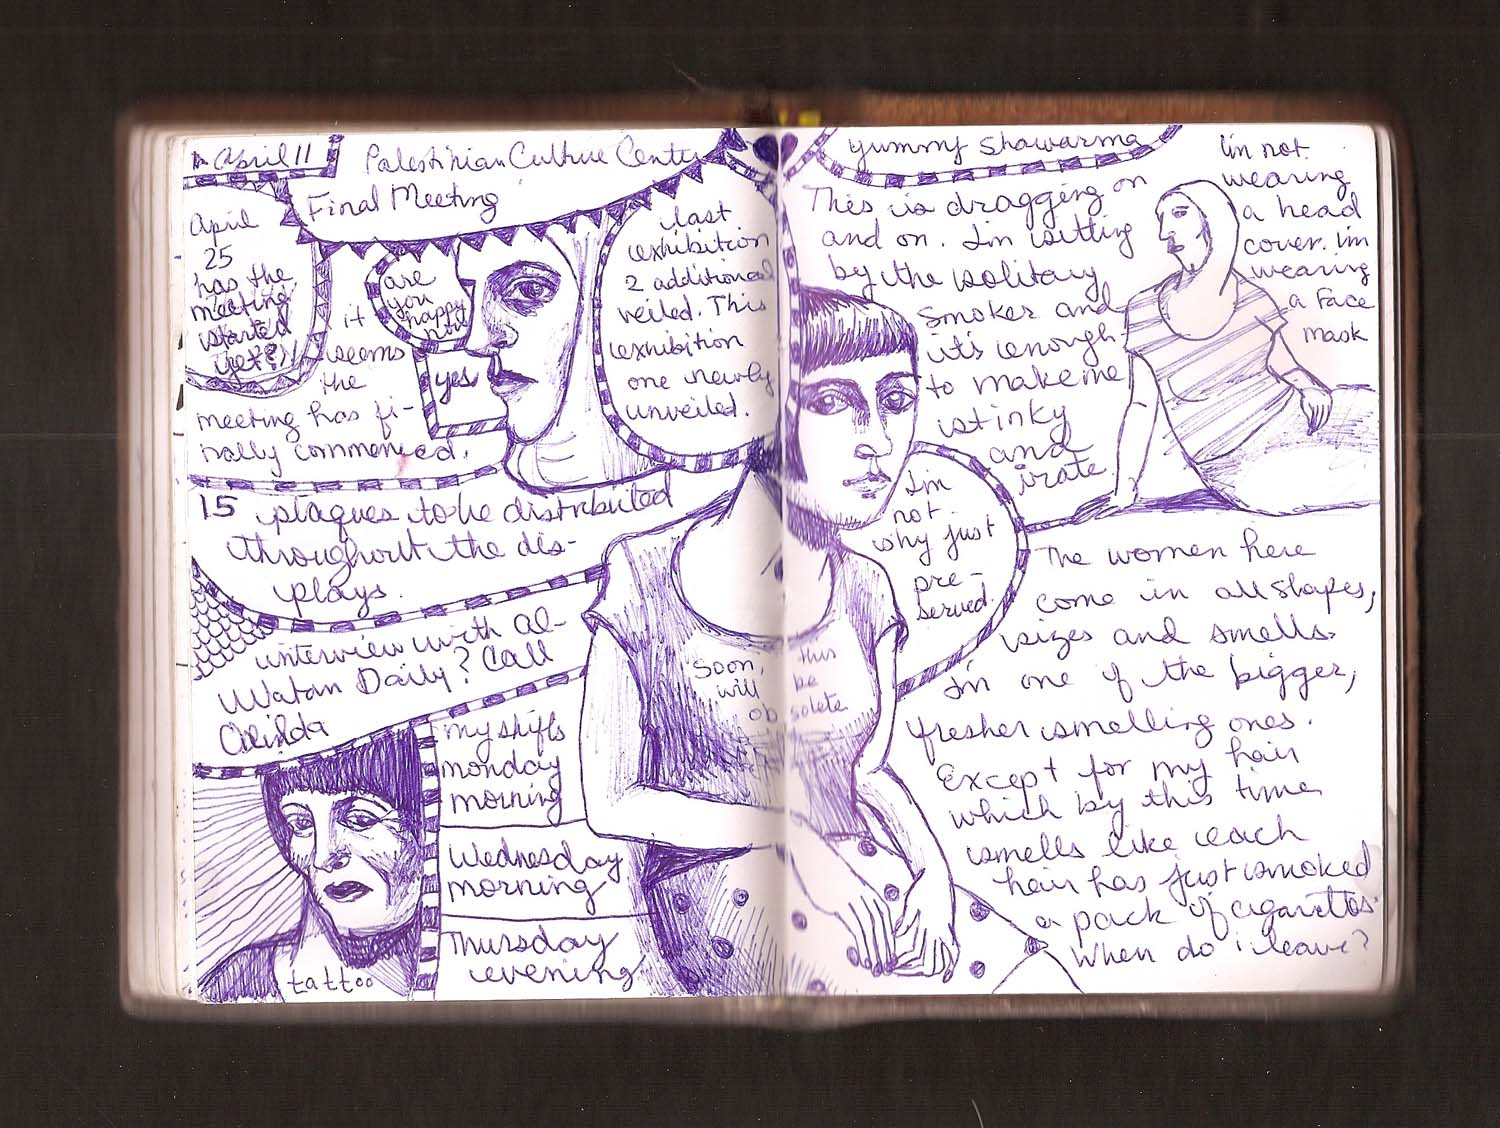 April 11
Palestinian Culture Center
Final Meeting
April
25
has the
meeting
started
yet?)!
it
seems
the
meeting has fi-
nally commenced.
are
you
happy
now
yes
last
exhibition
2 additional
veiled. This
exhibition
one newly
unveiled.
15 plaques to be distributed
throughout the dis-
plays.
interview with al-
Watan Daily? Call
tattoo
my shifts
monday
morning
Wednesday
morning
Thursday
evening
Soon, this
will be
obsolete
yummy Shawarma
This is dragging on
and on. I'm sitting
by the solitary
smoker and
it's enough
to make me
stinky
and
irate
I'm not
wearing
a head
cover. I'm
wearing
a face
mask
I'm
not
why just
pre-
served.
The women here
come in all shapes,
sizes and smells.
I'm one of the bigger,
fresher smelling ones.
Except for my hair
which by this time
smells like each
hair has just smoked
a pack of cigarettes.
When do i leave?